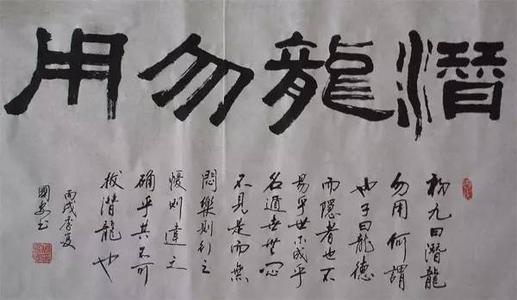 潜龍勿用
初九曰潜龍
勿用何謂
也子曰龍德
而隱者也不
易乎世不成乎
名遁世無悶
不見是而無
悶樂則行之
憂則違之
確乎其不可
拔潜龍也
丙戌季夏
國書